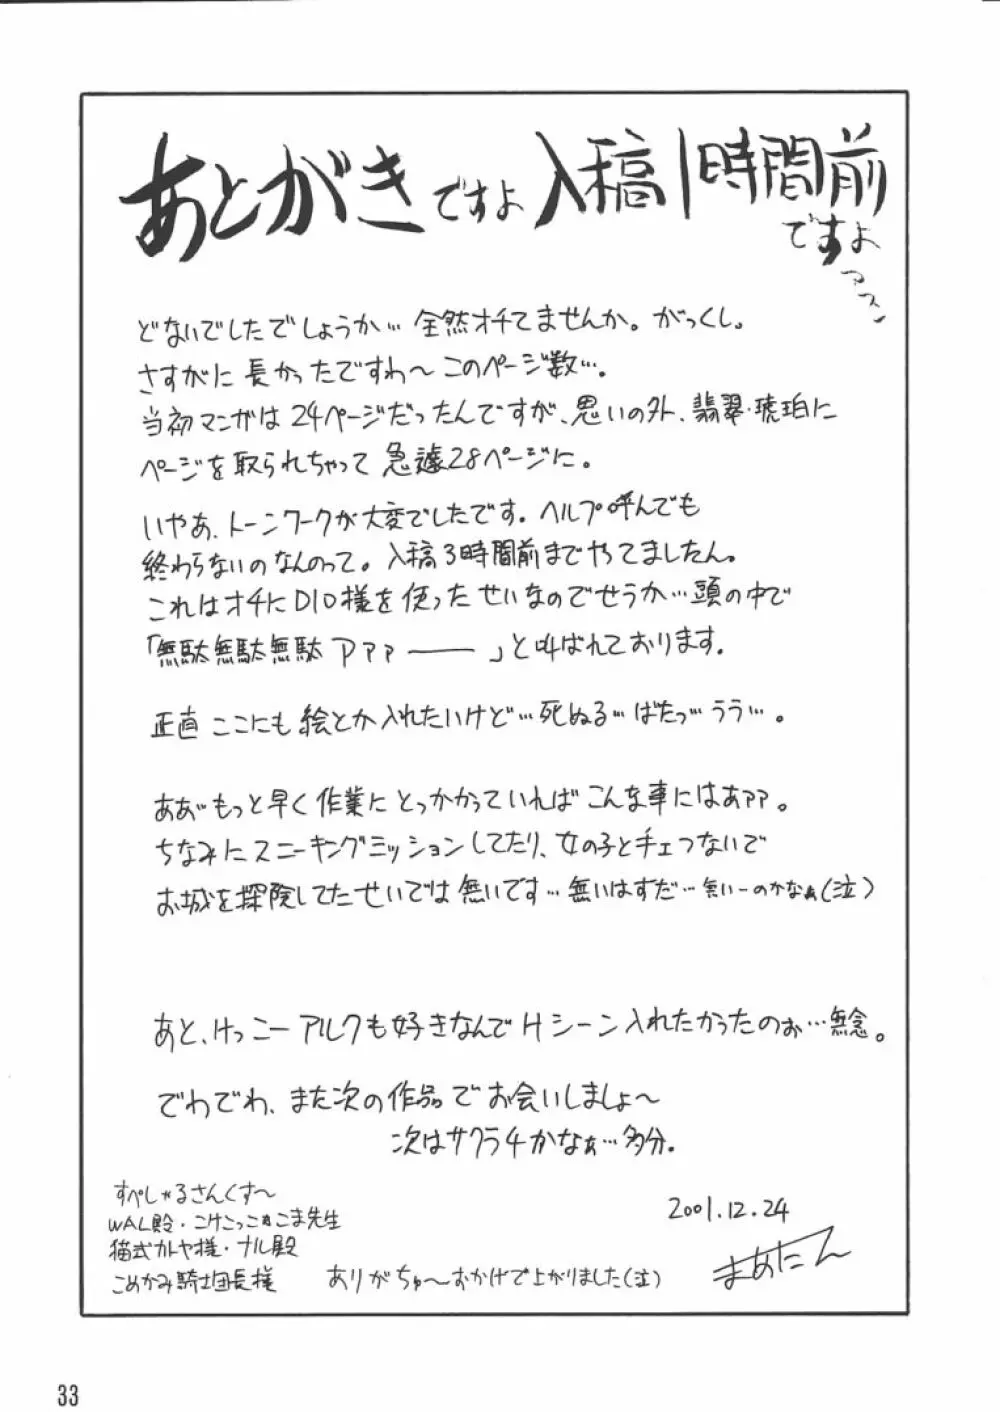 あとがきですよ 入稿1時間前
ですよ
マスン
どないでしたでしょうか…全然オチてませんか。がっくし。
さすがに長かったですわ～このページ数…。
当初マンガは24ページだったんですが、思いの外、翡翠・琥珀に
ページを取られちゃって急遽28ページに。
いやあ、トーンワークが大変でしたです。ヘルプ呼んでも
終わらないのなんのって。入稿3時間前までやってましたん。
これはオチにDIO様を使ったせいなのでせうか…頭の中で
「無駄無駄無駄アァァ――」と叫ばれております。
正直ここにも絵とか入れたいけど…死ぬる…ばたっ…うう…。
ああ…もっと早く作業にとっかかっていればこんな事にはあァァ。
ちなみにスニーキングミッションしてたり、女の子とチェつないで
お城を探険してたせいでは無いです…無いはずだ…無いーのかなぁ(泣)
あと、けっこーアルクも好きなんでHシーン入れたかったのぉ…無念。
でわでわ、また次の作品でお会いしましょ～
次はサクラ4かなぁ…多分。
すぺしゃるさんくす～
WAL殿・こけこっこぉこま先生
猫式カトヤ様・ナル殿
こめかみ騎士団長様
ありがちゅ～おかげで上がりました(泣)
2001.12.24
まあたん
33